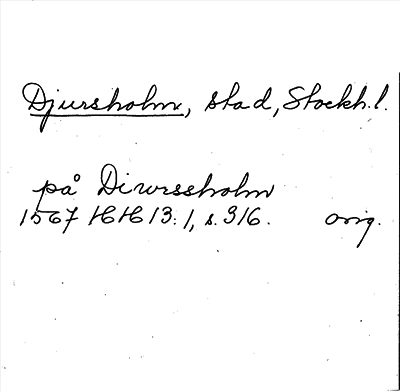 Djursholm, stad, Stockh.l.
på Diwrssholm
1567 HH 13:1, s. 316. orig.